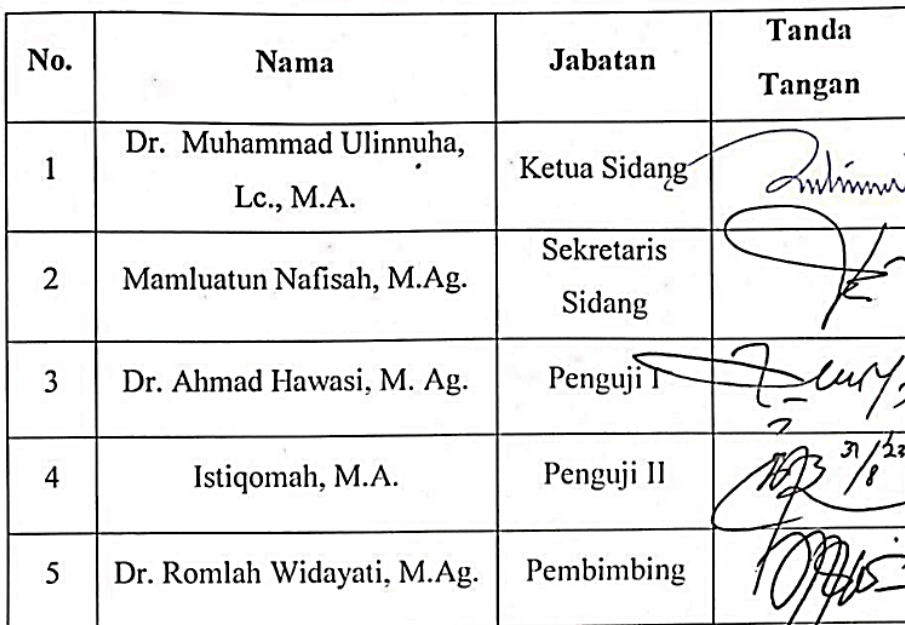 No. Nama Jabatan Tanda Tangan
1 Dr. Muhammad Ulinnuha, Lc., M.A. Ketua Sidang
2 Mamluatun Nafisah, M.Ag. Sekretaris Sidang
3 Dr. Ahmad Hawasi, M. Ag. Penguji I
4 Istiqomah, M.A. Penguji II 31/8 '23
5 Dr. Romlah Widayati, M.Ag. Pembimbing